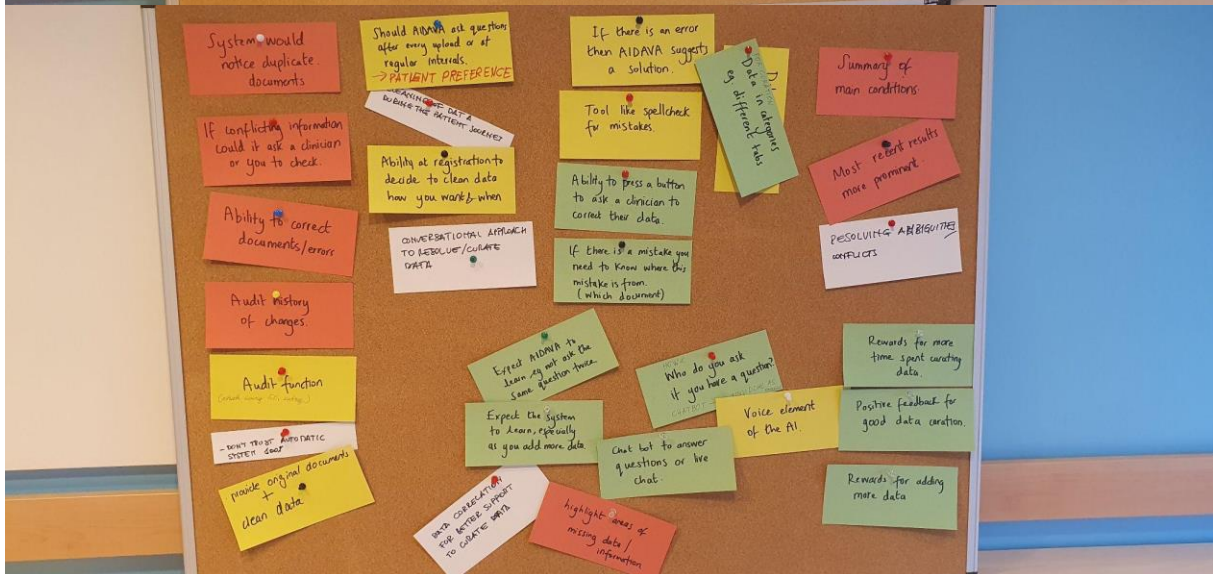 System would
notice duplicate
documents
If conflicting information
could it ask a clinician
or you to check.
Ability to correct
documents/errors
Audit history
of changes.
Audit function
- DON'T TRUST AUTOMATIC
SYSTEM 100%
provide original documents
+
clean data
Should AIDAVA ask questions
after every upload or at
regular intervals.
→ PATIENT PREFERENCE
CLEANING OF DATA
DURING THE PATIENT JOURNEY
Ability at registration to
decide to clean data
how you want & when
CONVERSATIONAL APPROACH
TO RESOLVE/CURATE
DATA
If there is an error
then AIDAVA suggests
a solution.
Tool like spellcheck
for mistakes.
Ability to press a button
to ask a clinician to
correct their data.
If there is a mistake you
need to know where this
mistake is from.
(which document)
Data in categories
eg different tabs
Summary of
main conditions.
Most recent results
more prominent.
RESOLVING AMBIGUITIES/
CONFLICTS
Expect AIDAVA to
learn, eg not ask the
same question twice.
Expect the system
to learn, especially
as you add more data.
DATA CORRELATION
FOR BETTER SUPPORT
TO CURATE DATA
Who do you ask
if you have a question?
Chat bot to answer
questions or live
chat.
Voice element
of the AI.
highlight areas of
missing data /
information
Rewards for more
time spent curating
data.
Positive feedback for
good data curation.
Rewards for adding
more data